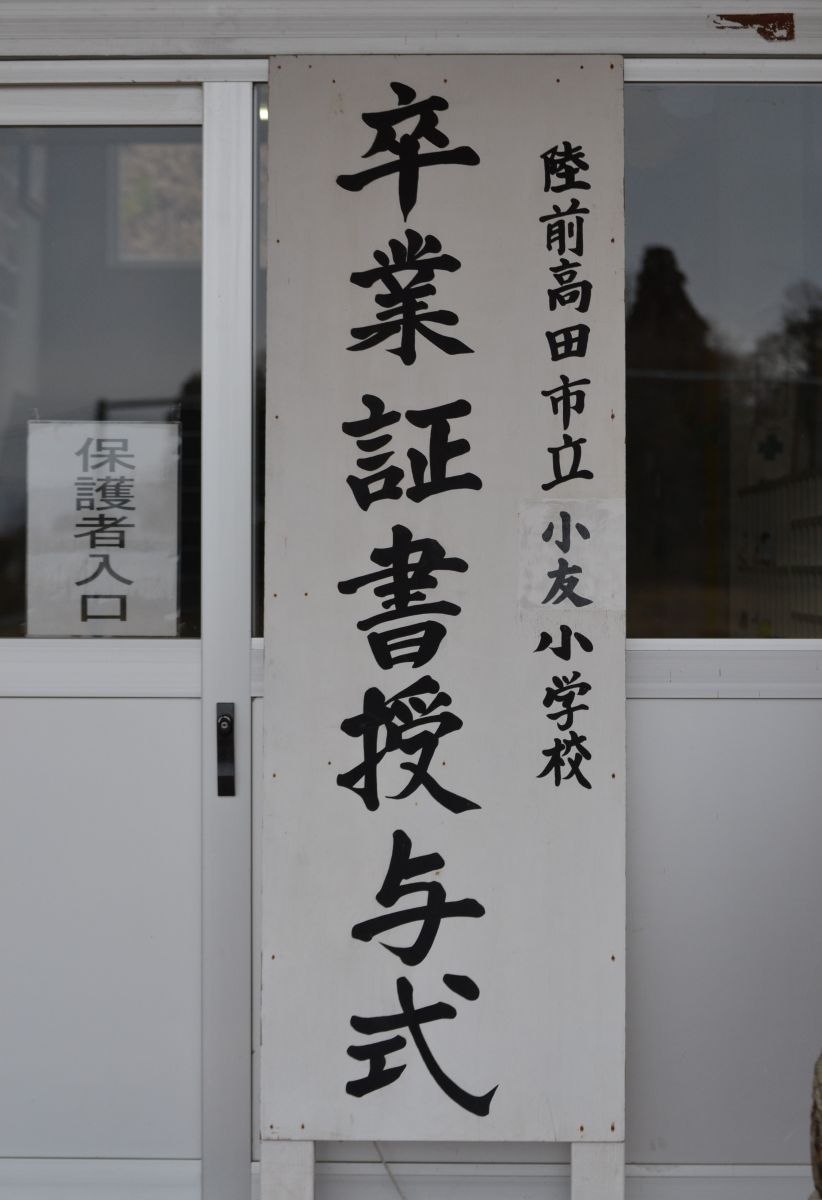 陸前高田市立小友小学校
卒業証書授与式
保護者入口